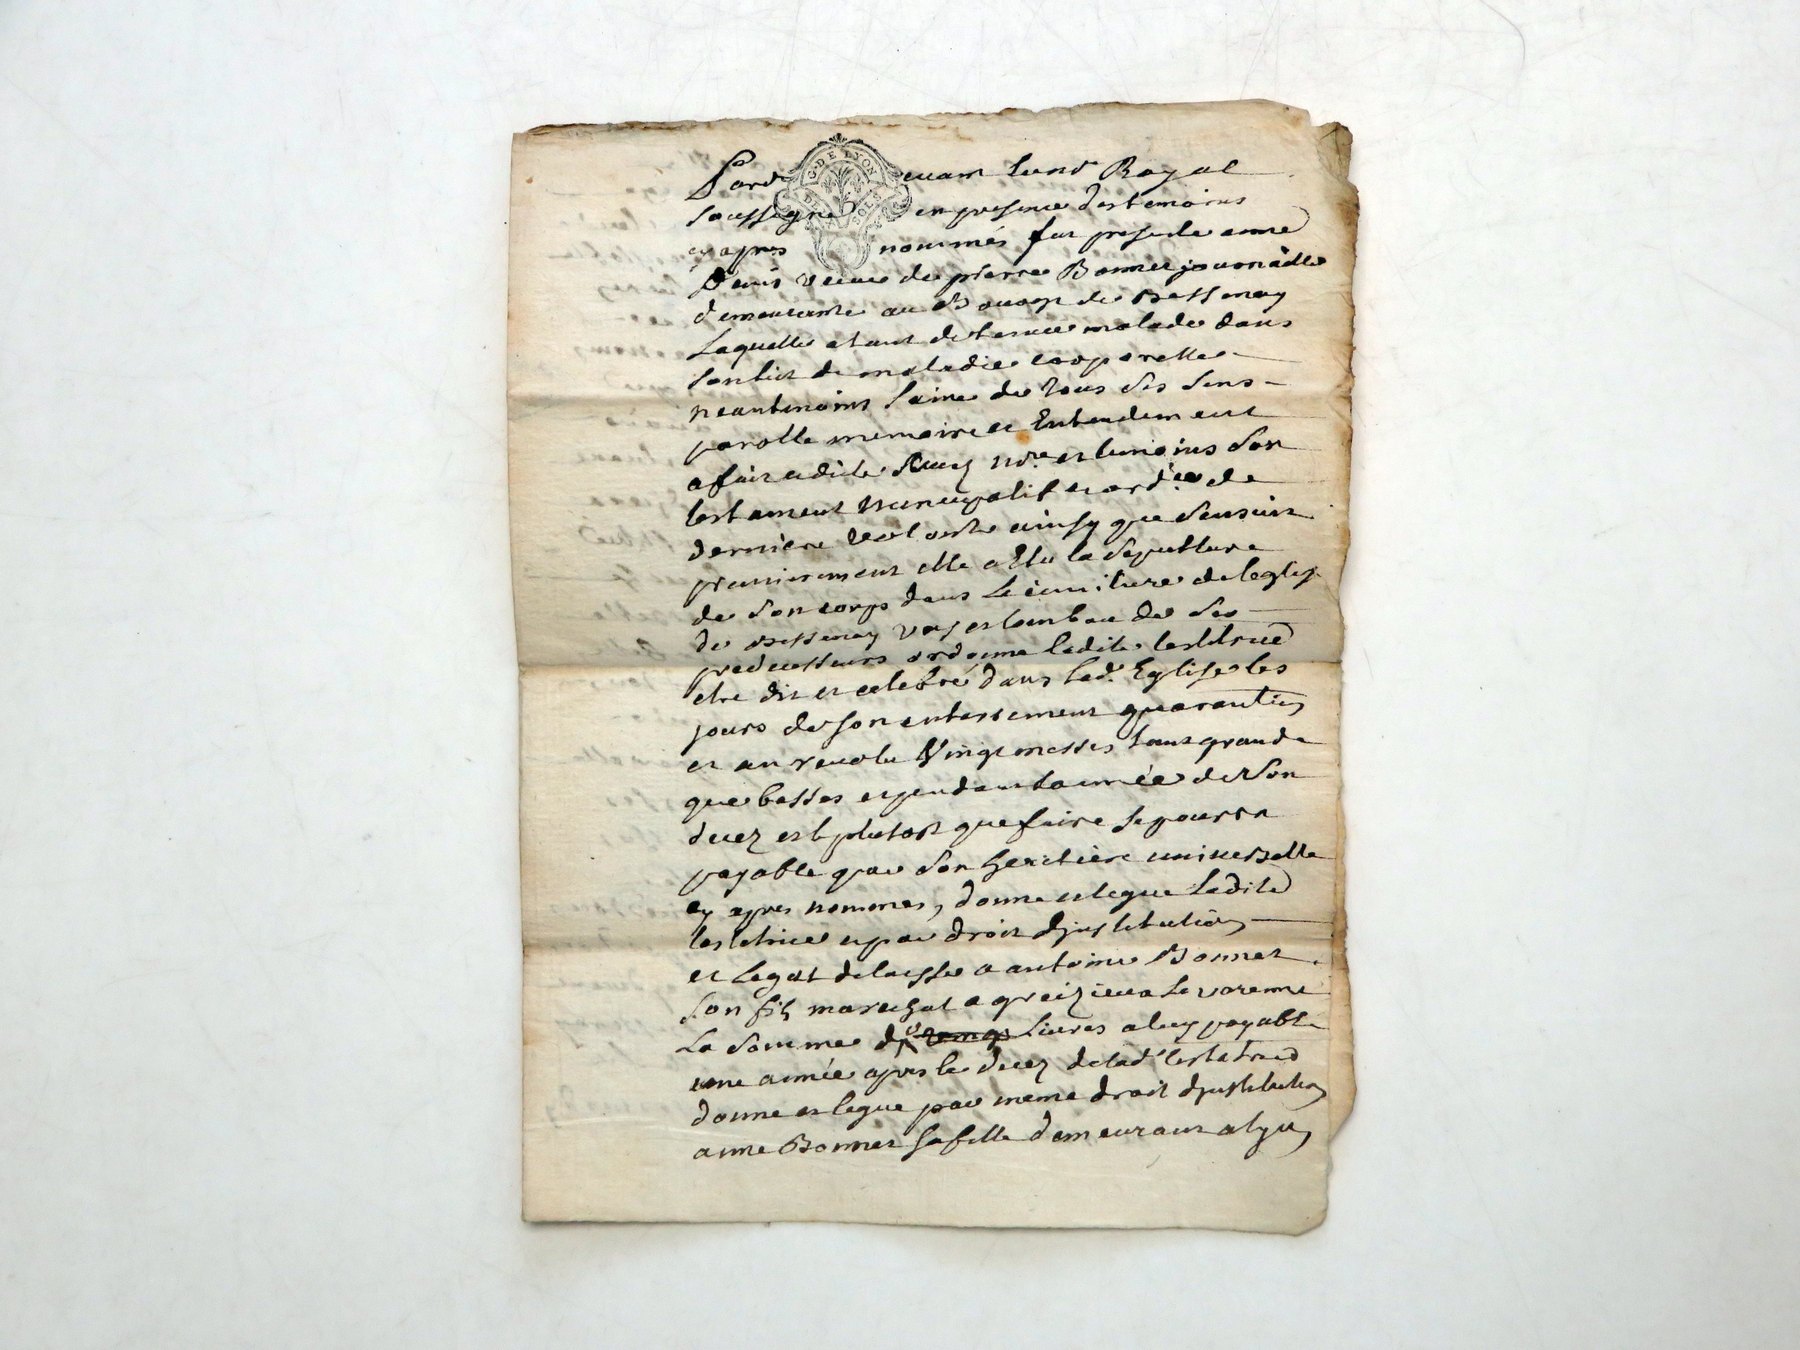 G. DE LYON
DEUX SOLS
Pard evant le nore Royal
soussigné en presence des temoins
cy apres nommés fut presente anne
veuve de pierre Bonnet journallie
demeurante au Bourg de Bessenay
Laquelle etant detenue malade dans
son lict de maladie corporelle
neantmoins saine de tous ses sens
parolle memoire et Entendement
a fait a dicte aud nore. et temoins son
testament nuncupatif et ordce. de
derniere volonte ainsy que sensuit
premierement elle a Elu la sepulture
de son corps dans Le cimitiere de leglise
de Bessenay et tombau de ses
predecesseurs ordonne ladite testatrice
etre dit et celebré dans lad. Eglise les
jours de son enterrement quarantin
et an revolu Vingt messes tant grande
que basses et pendant lannée de son
decez et plutost que faire se pourra
payable par son heritiere universelle
cy apres nommes, donne et legue ladite
testatrice et par droit djnstitution
et Legat delaisse a antoine Bonnet
son fils marechal a greizieu Le varenne
La somme de livres a luy payable
une année apres le decez de lad. testatrice
donne et legue par meme droit djnstitution
a anne Bonnet sa fille demeurant a lyon